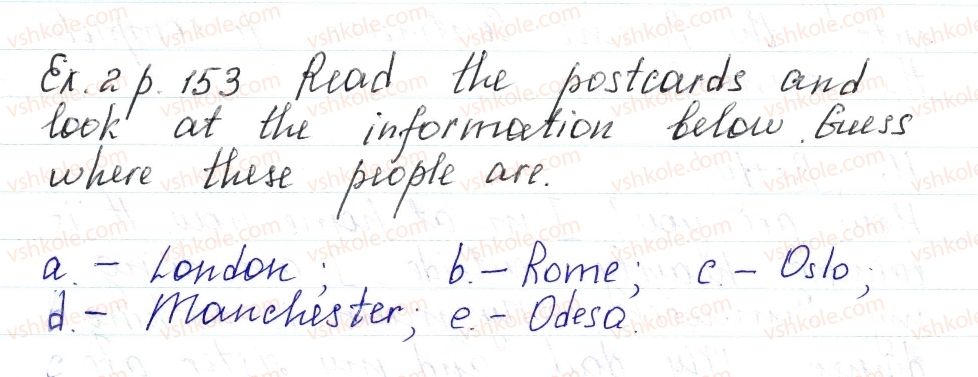 Ex. 2 p. 153 Read the postcards and
look at the information below. Guess
where these people are.
a. - London; b. - Rome; c. - Oslo;
d. - Manchester; e. - Odesa.